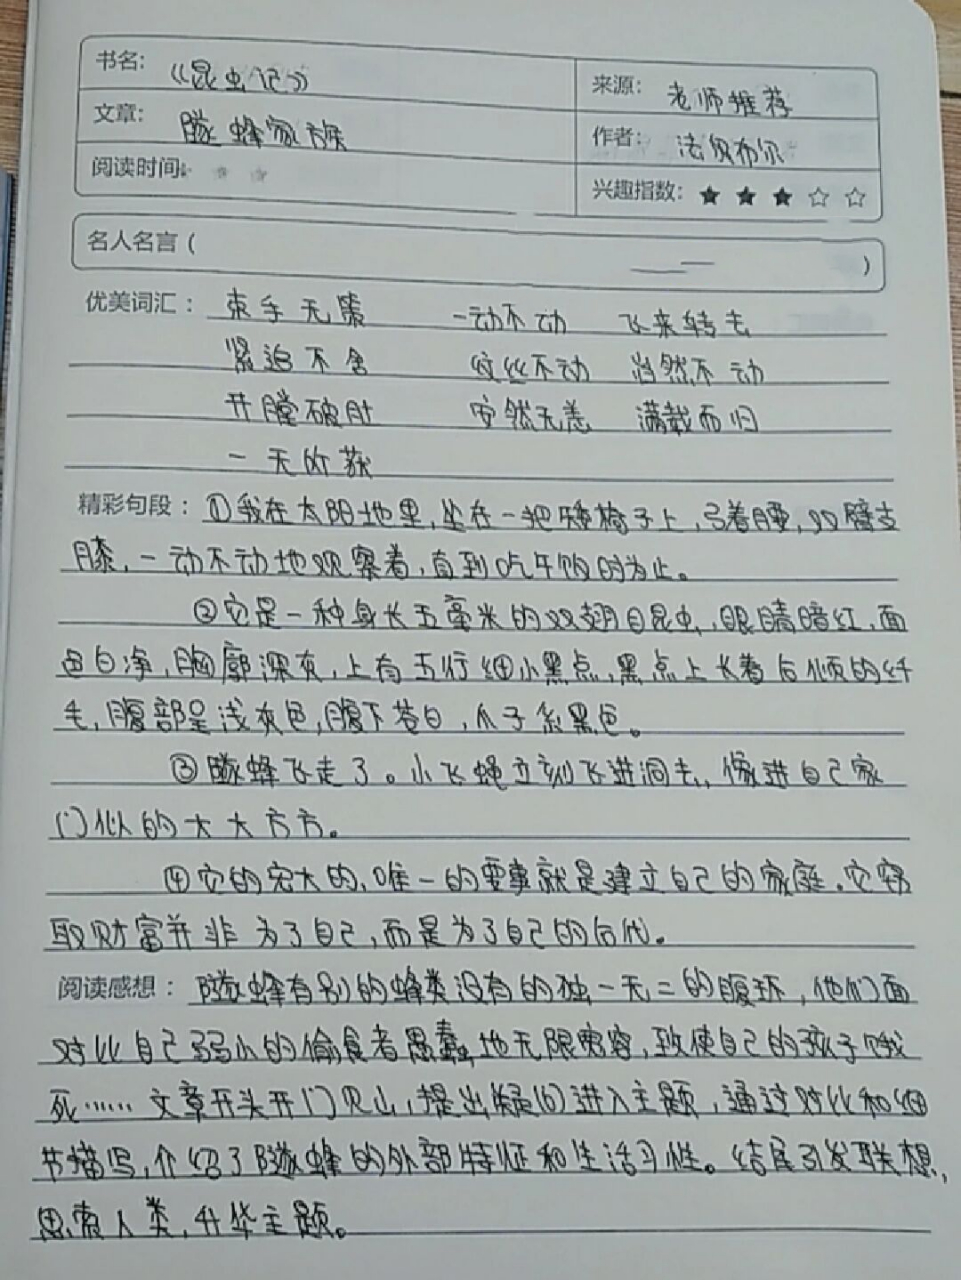 书名：《昆虫记》 来源：老师推荐
文章：隧蜂家族 作者：法贝布尔
阅读时间：
兴趣指数：★★★☆☆
名人名言（ ）
优美词汇：束手无策 一动不动 飞来转去
紧追不舍 纹丝不动 岿然不动
开膛破肚 安然无恙 满载而归
一无所获
精彩句段：①我在太阳地里，坐在一把矮椅子上，弓着腰，双臂支
膝，一动不动地观察着，直到吃午饭时为止。
②它是一种身长五毫米的双翅目昆虫，眼睛暗红，面
色白净，胸廓深灰，上有五行细小黑点，黑点上长着后倾的纤
毛，腹部呈浅灰色，腹下苍白，爪子系黑色。
③隧蜂飞走了。小飞蝇立刻飞进洞去，像进自己家
门似的大大方方。
④它的宏大的，唯一的要事就是建立自己的家庭。它窃
取财富并非为了自己，而是为了自己的后代。
阅读感想：隧蜂有别的蜂类没有的独一无二的腹环，他们面
对比自己弱小的偷食者愚蠢地无限宽容，致使自己的孩子饿
死……文章开头开门见山，提出疑问进入主题，通过对比和细
节描写，介绍了隧蜂的外部特征和生活习性。结尾引发联想，
思索人类，升华主题。